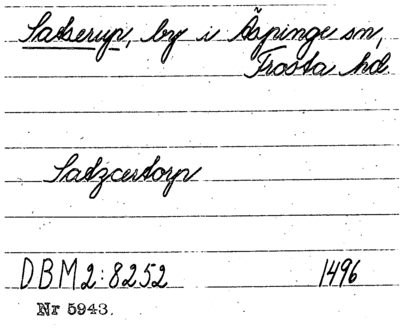 Satserup, by i Äspinge sn,
Frosta hd
Satzcertorp
DBM2:8252 1496
Nr 5943.